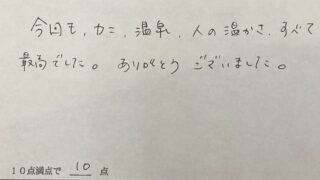 今回も，カニ，温泉，人の温かさ，すべて
最高でした。ありがとうございました。
10点満点で 10 点